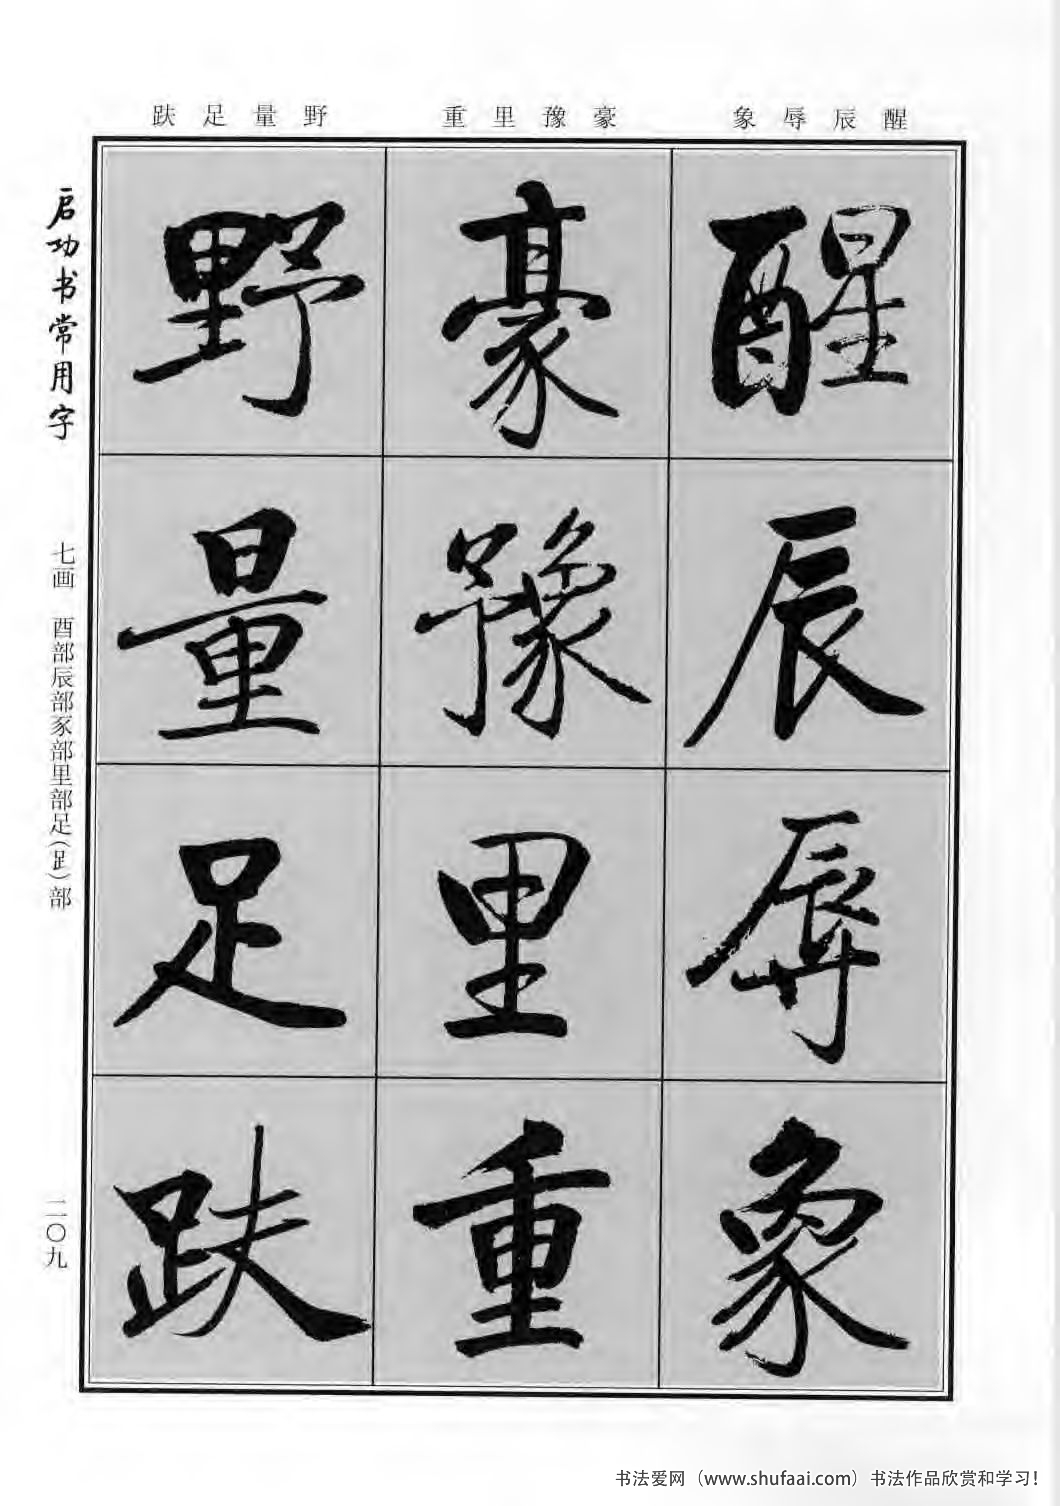 醒辰辱象
豪豫里重
野量足趺
醒
辰
辱
象
豪
豫
里
重
野
量
足
趺
启功书常用字
七画 酉部辰部豕部里部足(⻊)部
二〇九
书法爱网（www.shufaai.com）书法作品欣赏和学习！